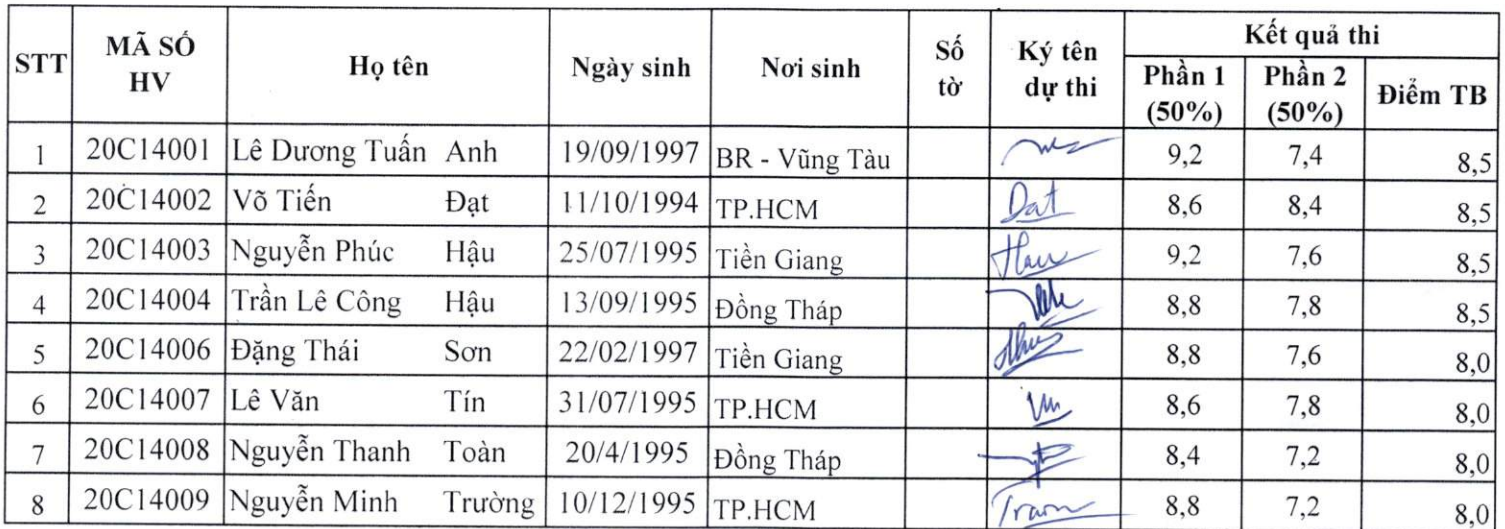 STT MÃ SỐ HV Họ tên Ngày sinh Nơi sinh Số tờ Ký tên dự thi Kết quả thi
Phần 1 (50%) Phần 2 (50%) Điểm TB
1 20C14001 Lê Dương Tuấn Anh 19/09/1997 BR - Vũng Tàu 9,2 7,4 8,5
2 20C14002 Võ Tiến Đạt 11/10/1994 TP.HCM Dat 8,6 8,4 8,5
3 20C14003 Nguyễn Phúc Hậu 25/07/1995 Tiền Giang Hau 9,2 7,6 8,5
4 20C14004 Trần Lê Công Hậu 13/09/1995 Đồng Tháp 8,8 7,8 8,5
5 20C14006 Đặng Thái Sơn 22/02/1997 Tiền Giang 8,8 7,6 8,0
6 20C14007 Lê Văn Tín 31/07/1995 TP.HCM 8,6 7,8 8,0
7 20C14008 Nguyễn Thanh Toàn 20/4/1995 Đồng Tháp 8,4 7,2 8,0
8 20C14009 Nguyễn Minh Trường 10/12/1995 TP.HCM 8,8 7,2 8,0